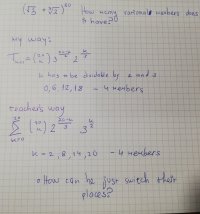 (√3 + ∛2)²⁰ How many rational members does it have?
my way:
Tₖ₊₁ = (20 k) 3^((20-k)/2) 2^(k/3)
k has to be dividable by 2 and 3
0, 6, 12, 18 - 4 members
teachers way
20 Σ k=0 (20 k) 2^((20-k)/3) 3^(k/2)
k = 2, 8, 14, 20 - 4 members
• How can he just switch their
places?